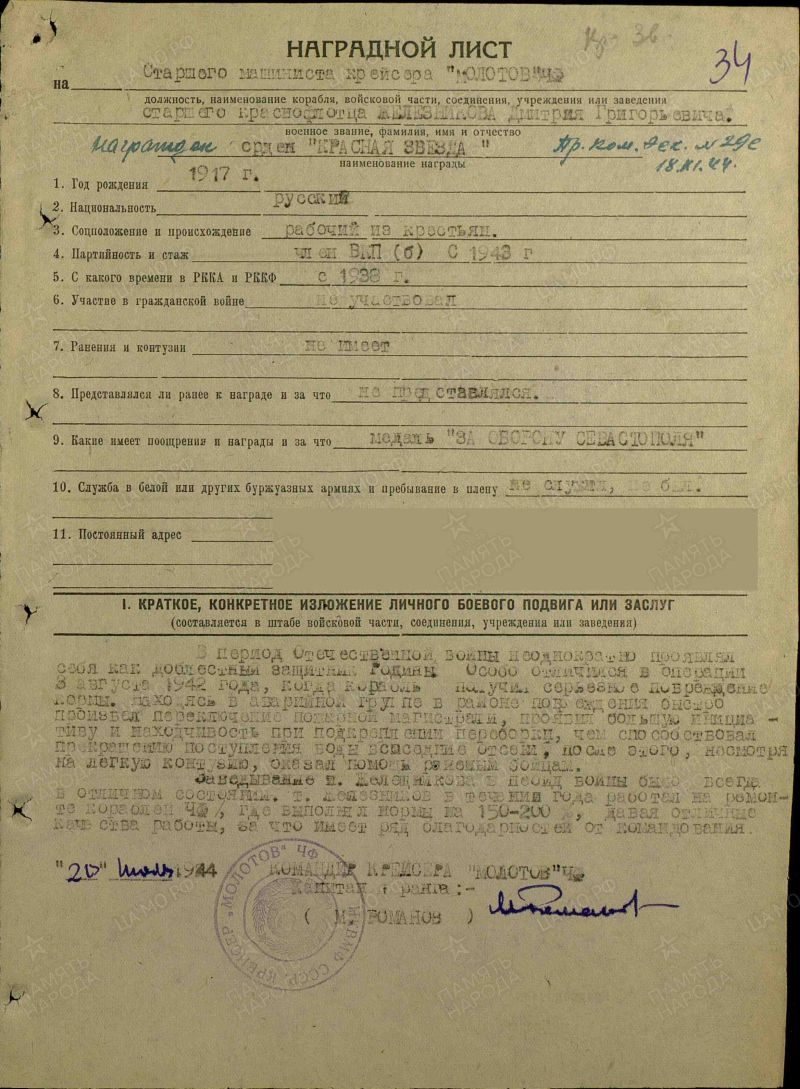 Кр. Зв.
34
НАГРАДНОЙ ЛИСТ
на Старшего машиниста крейсера "МОЛОТОВ" ЧФ
должность, наименование корабля, войсковой части, соединения, учреждения или заведения
старшего краснофлотца ЖЕЛЕЗНИКОВА Дмитрия Григорьевича.
военное звание, фамилия, имя и отчество
награжден орден "КРАСНАЯ ЗВЕЗДА " Пр. Ком.
наименование награды
18.XI.44.
1. Год рождения 1917 г.
2. Национальность русский
3. Соцположение и происхождение рабочий из крестьян.
4. Партийность и стаж член ВКП (б) С 1943 г
5. С какого времени в РККА и РККФ с 1938 г.
6. Участие в гражданской войне не участвовал
7. Ранения и контузии не имеет
8. Представлялся ли ранее к награде и за что не представлялся.
9. Какие имеет поощрения и награды и за что медаль "ЗА ОБОРОНУ СЕВАСТОПОЛЯ"
10. Служба в белой или других буржуазных армиях и пребывание в плену не служил, не был.
11. Постоянный адрес
I. КРАТКОЕ, КОНКРЕТНОЕ ИЗЛОЖЕНИЕ ЛИЧНОГО БОЕВОГО ПОДВИГА ИЛИ ЗАСЛУГ
(составляется в штабе войсковой части, соединения, учреждения или заведения)
В период Отечественной войны неоднократно проявлял
себя как доблестный защитник Родины Особо отличился в операции
3 августа 1942 года, когда корабль получил серьезное повреждение
кормы. Находясь в аварийной группе в районе повреждения быстро
произвел переключение пожарной магистрали, проявил большую инициа -
тиву и находчивость при подкреплении переборки, чем способствовал
прекращению поступления воды в соседние отсеки, после этого, несмотря
на легкую контузию, оказал помощь раненым бойцам.
Заведывание т. Железникова в период войны было всегда
в отличном состоянии. т. Железников в течении года работал на ремон-
те кораблей ЧФ, где выполнял нормы на 150-200 %, давая отличные
качества работы, за что имеет ряд благодарностей от командования.
"20" Июль 1944 КОМАНДИР КРЕЙСЕРА "МОЛОТОВ" ЧФ
Капитан ранга :-
( М. РОМАНОВ )
НКВМФ СССР. КРЕЙСЕР „МОЛОТОВ" ЧФ
ПАМЯТЬ НАРОДА
ЦАМО.РФ